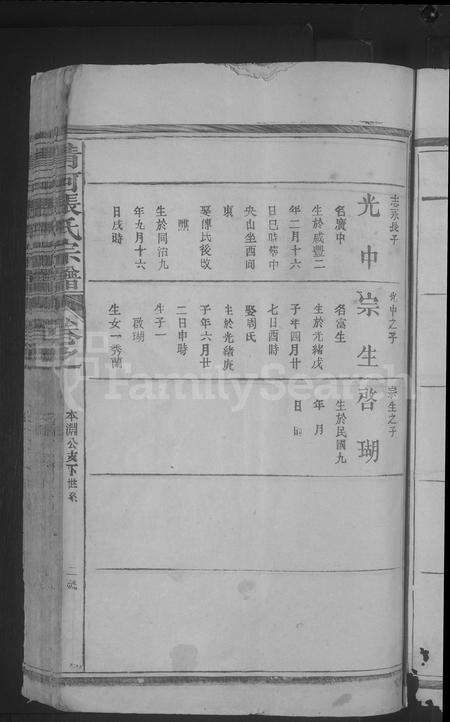 志永長子
光中
名廣中
生於咸豐二
年二月十六
日巳時葬中
央山坐酉向
東
娶陳氏後改
醮
生於同治九
年九月十六
日戌時
光中之子
宗生
名富生
生於光緒戊
子年四月廿
七日酉時
娶周氏
生於光緒庚
子年六月廿
二日申時
生子一
啟瑚
生女一秀蘭
宗生之子
啓瑚
生於民國九
年 月
日 時
清河張氏宗譜
卷之
本淵公支下世系
FamilySearch